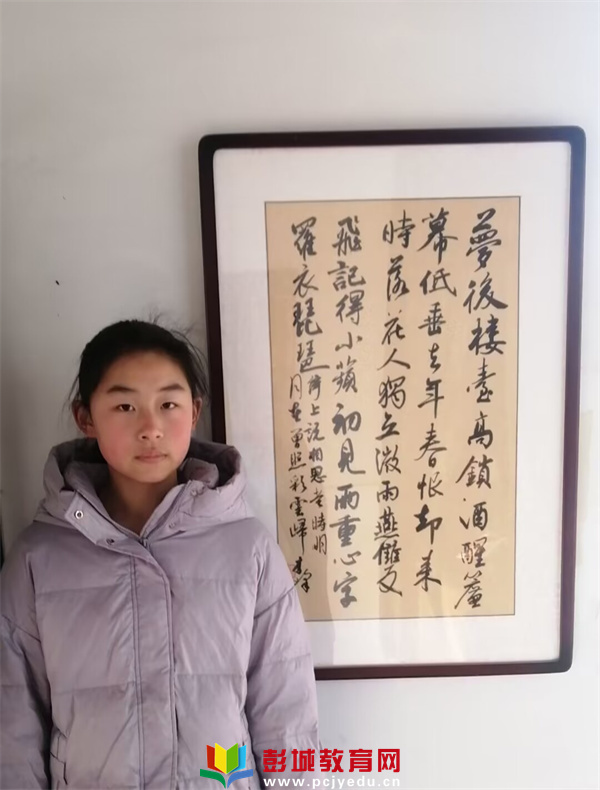 夢後楼臺高鎖酒醒簾
幕低垂去年春恨却来
時落花人獨立微雨燕雙
飛記得小蘋初見兩重心字
羅衣琵琶
弦上说相思當時明
月在曾照彩雲歸
彭城教育网
www.pcjyedu.cn